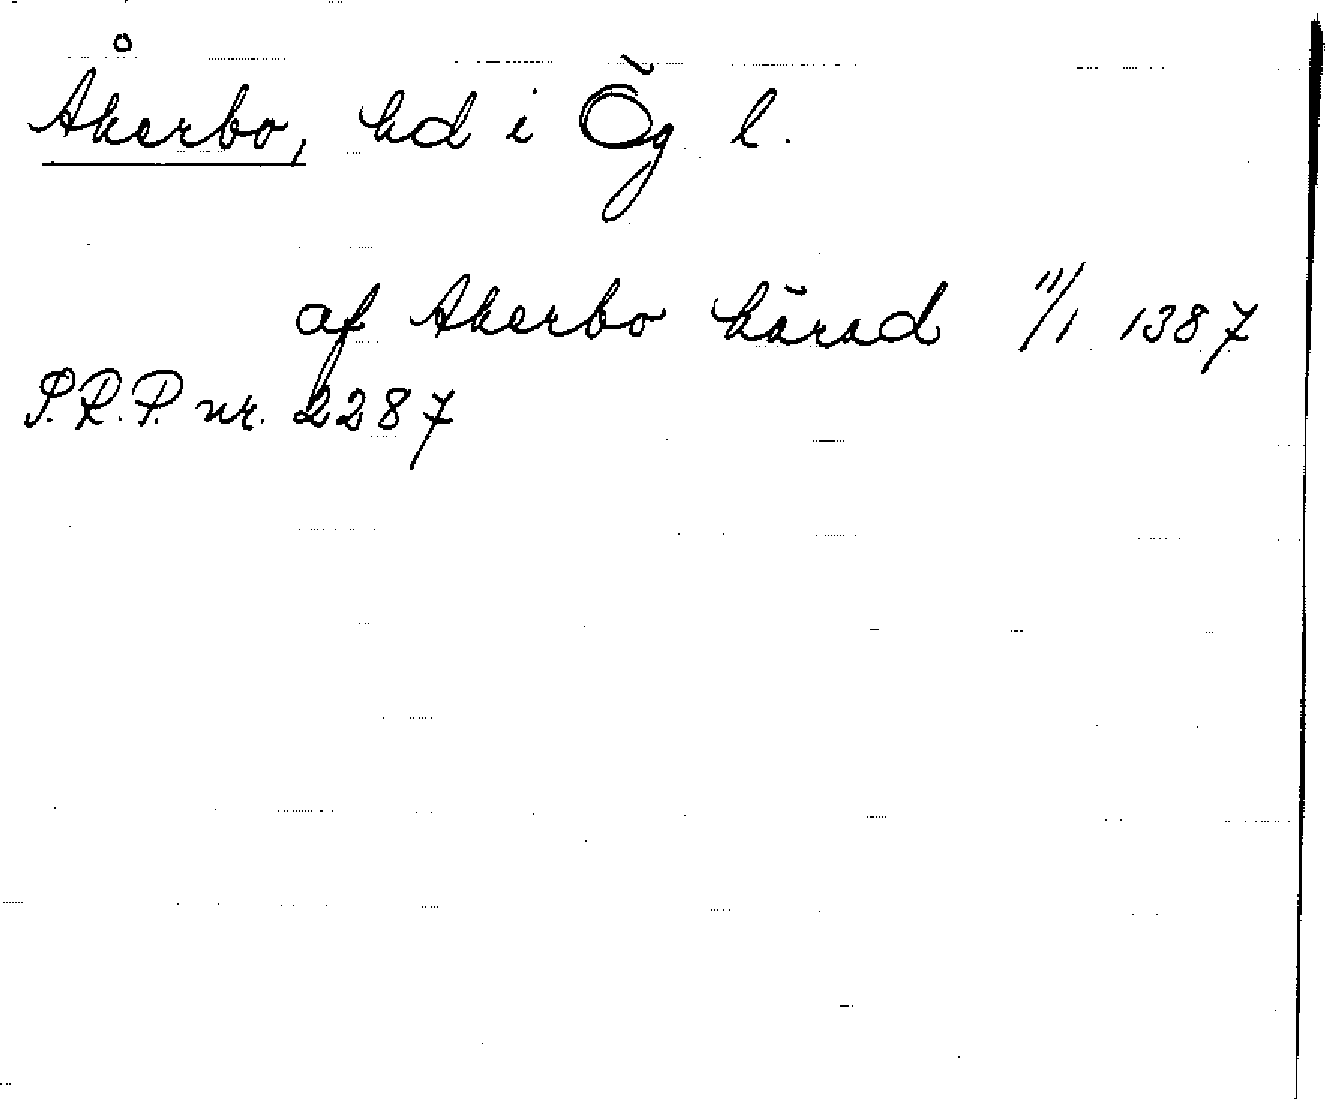 Åkerbo, hd i Ög l.
af Akerbo härad 11/1 1387
P.R.P. nr. 2287